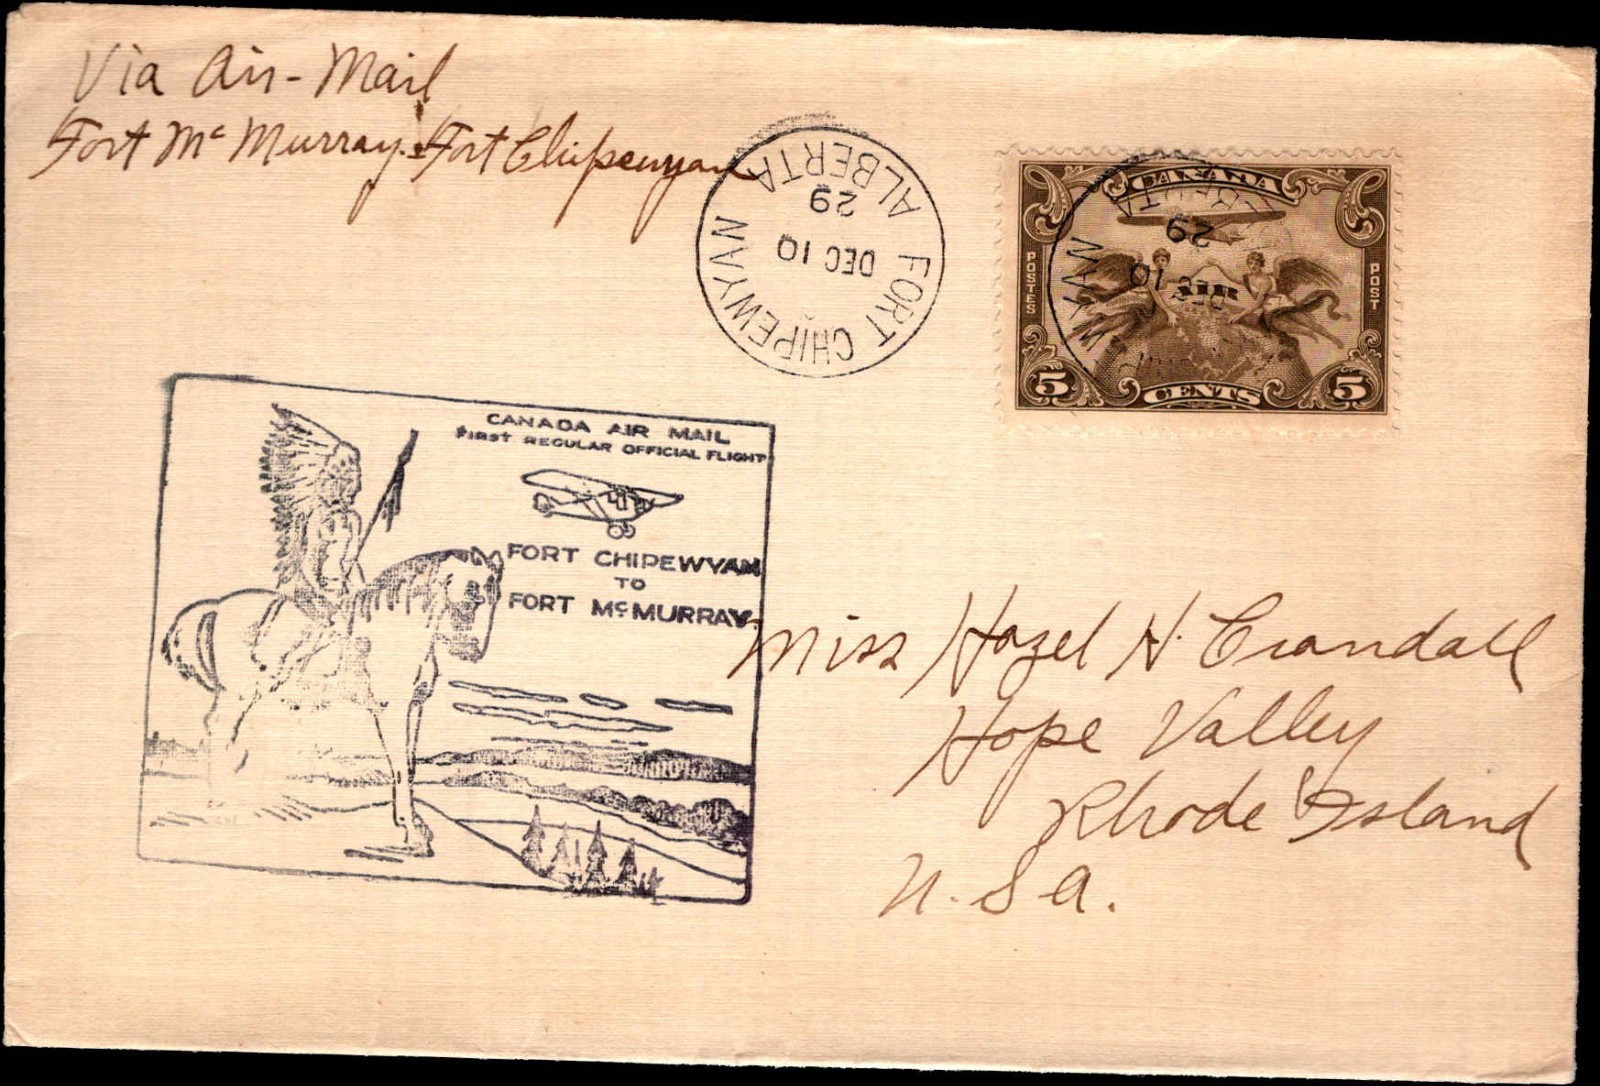 Via Air-Mail
Fort Mc Murray - Fort Chipewyan
FORT CHIPEWYAN
ALBERTA
DEC 10
29
CANADA
POSTES
POST
AIR
5 CENTS 5
WYAN
DEC 10
29
CANADA AIR MAIL
FIRST REGULAR OFFICIAL FLIGHT
FORT CHIPEWYAN
TO
FORT McMURRAY
Miss Hazel H. Crandall
Hope Valley
Rhode Island
U.S.A.